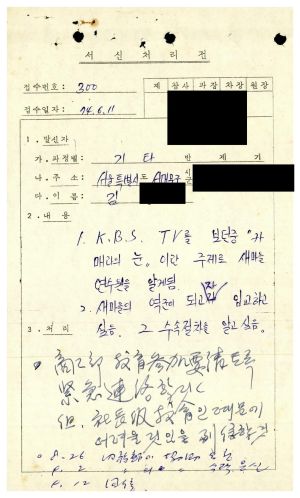 서 신 처 리 전
접수번호: 200
접수일자: 74.6.11
계 장 사 과 장 차 장 원 장
1. 발신자
가. 과정별: 기 타 반 제 기
나. 주 소: 서울특별시도 서대문구 시군
다. 이 름: 김
2. 내 용
1. K.B.S. TV를 보던중 "카
메라의 눈" 이란 주제로 새마을
연수원을 알게됨.
2. 새마을의 역군이 되고자 입교하고
싶음. 그 수속절차를 알고싶음.
3. 처 리
教育參加要請토록
緊急連絡할것
但, 社長級 教育인 때문에
8.26
9.2
9.12